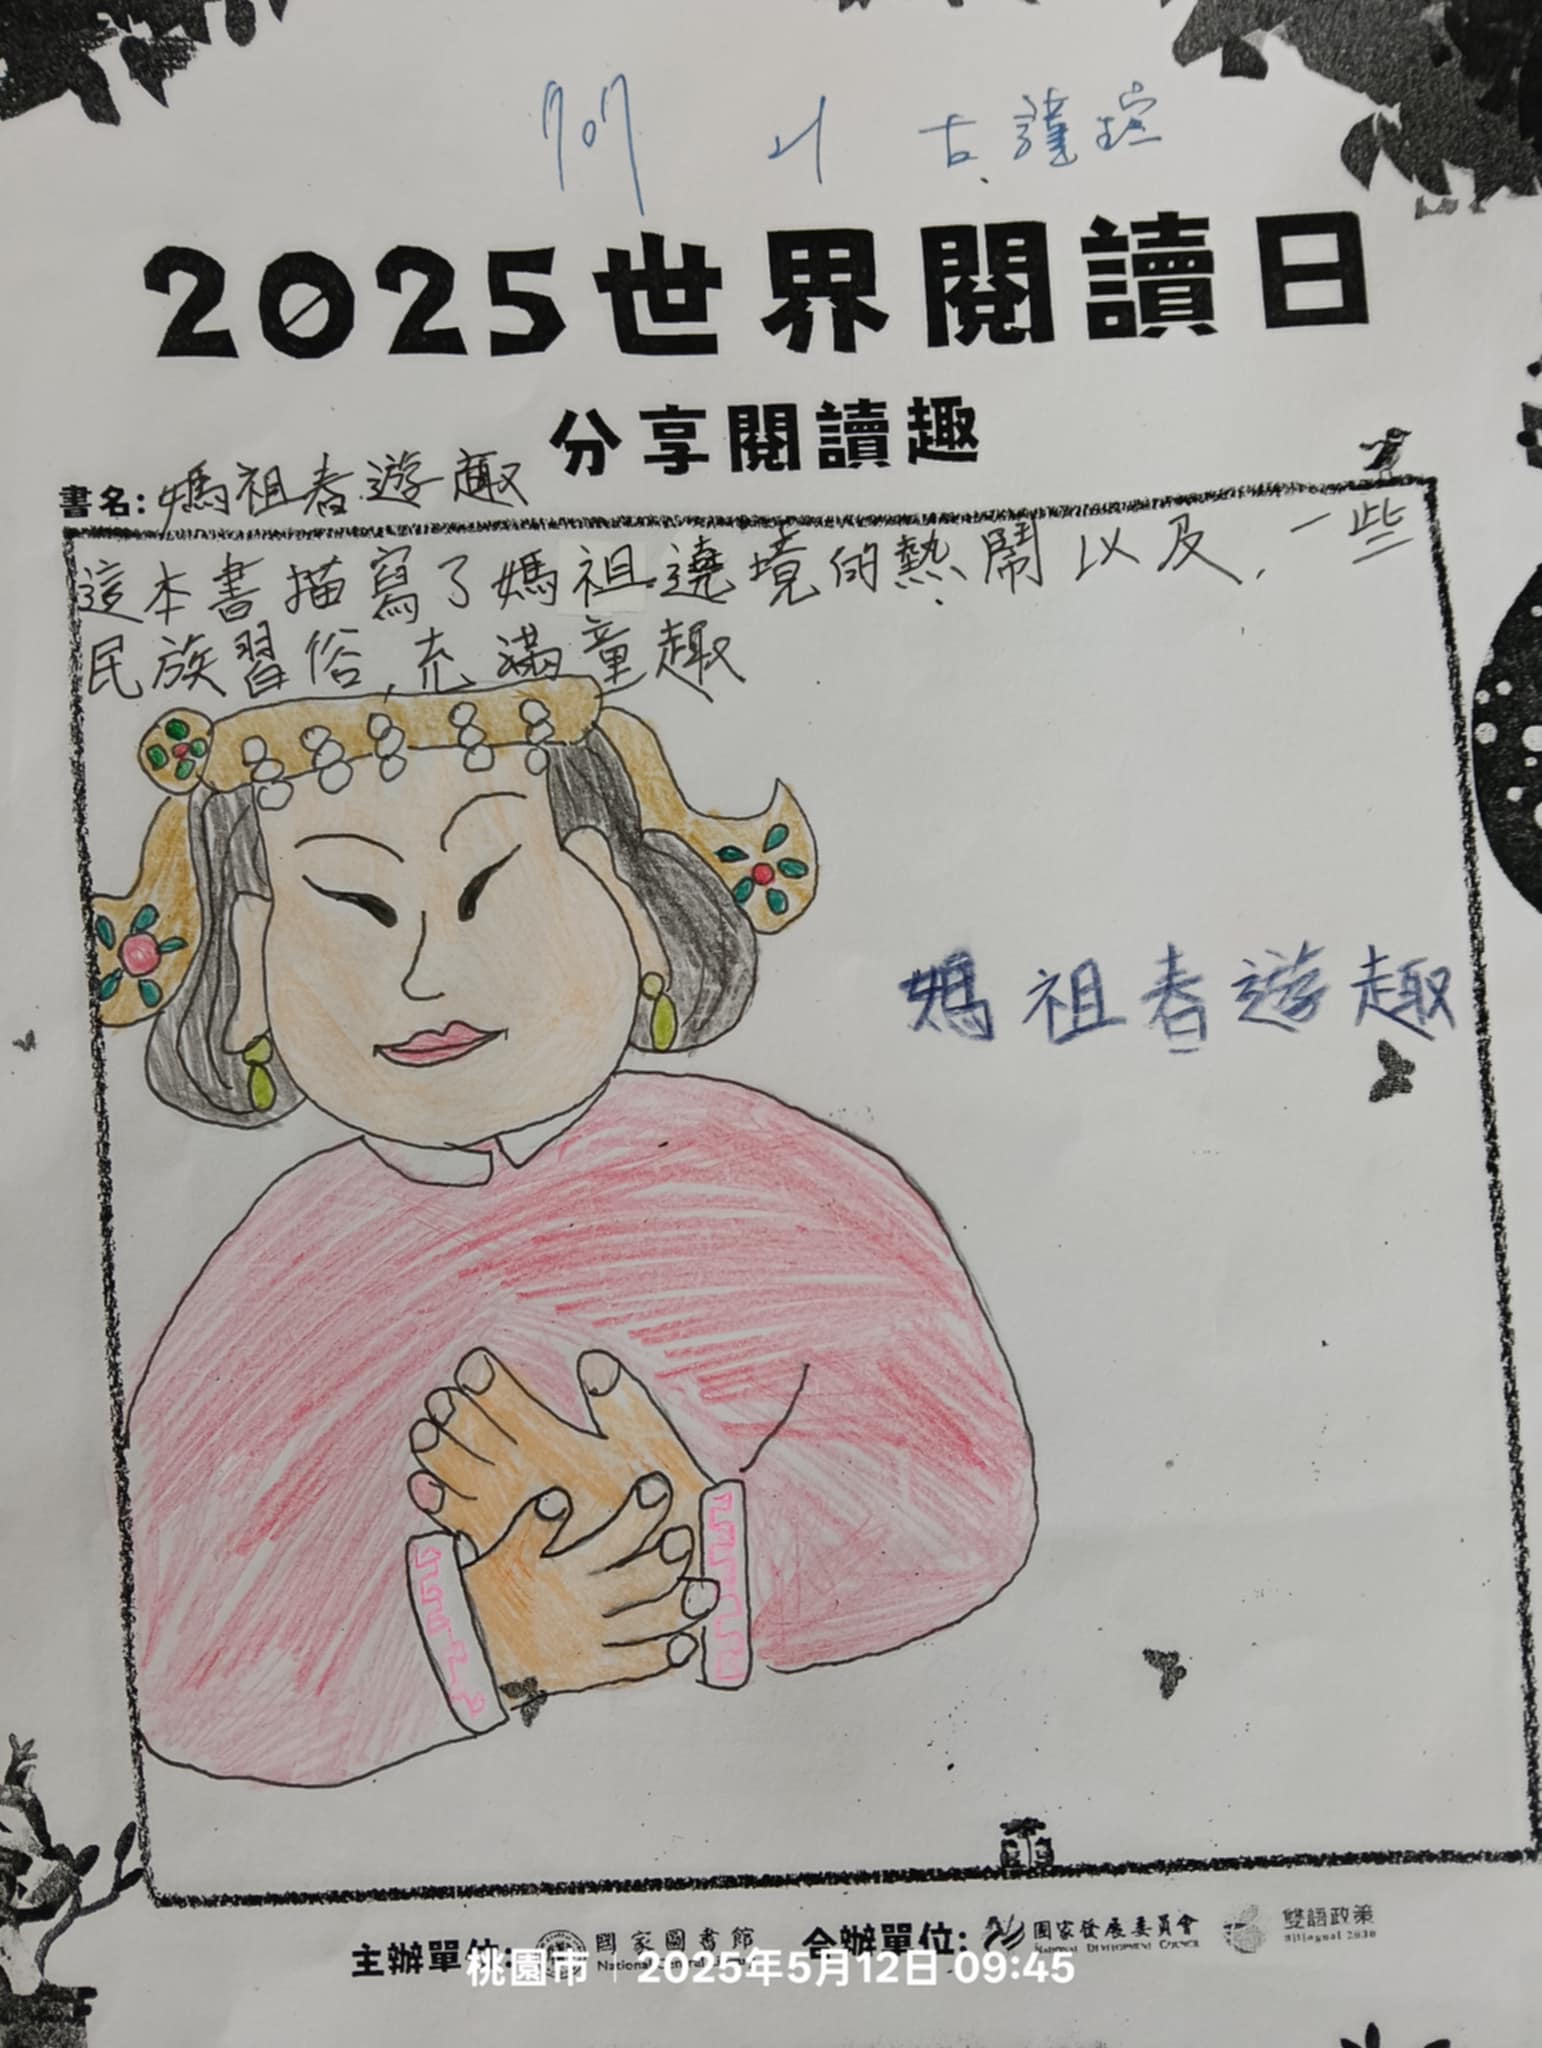 707 21 古謹瑄
2025世界閱讀日
分享閱讀趣
書名: 媽祖春遊趣
這本書描寫了媽祖遶境的熱鬧以及一些
民族習俗,充滿童趣
媽祖春遊趣
主辦單位: 國家圖書館 合辦單位: 國家發展委員會 雙語政策
National Central NATIONAL DEVELOPMENT COUNCIL Bilingual 2030
桃園市 | 2025年5月12日 09:45